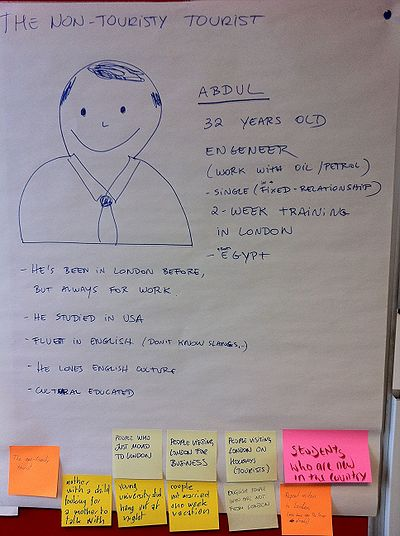 THE NON-TOURISTY TOURIST
ABDUL
32 YEARS OLD
ENGENEER
(WORK WITH OIL/PETROL)
- SINGLE (FIXED-RELATIONSHIP)
2-WEEK TRAINING
IN LONDON
- EGYPT
- HE'S BEEN IN LONDON BEFORE,
BUT ALWAYS FOR WORK.
- HE STUDIED IN USA
- FLUENT IN ENGLISH (DON'T KNOW SLANGS..)
- HE LOVES ENGLISH CULTURE
- CULTURAL EDUCATED
The non-touristy
tourist
mother
with a child
looking for
a mother to
talk with
PEOPLE WHO
JUST MOVED
TO LONDON
young
university
hang out at
night
PEOPLE VISITING
LONDON FOR
BUSINESS
couple
not married
one week
vacation
PEOPLE VISITING
LONDON ON
HOLIDAYS
(TOURISTS)
ENGLISH PEOPLE
WHO ARE NOT
FROM LONDON
STUDENTS
who are new
in the country
London